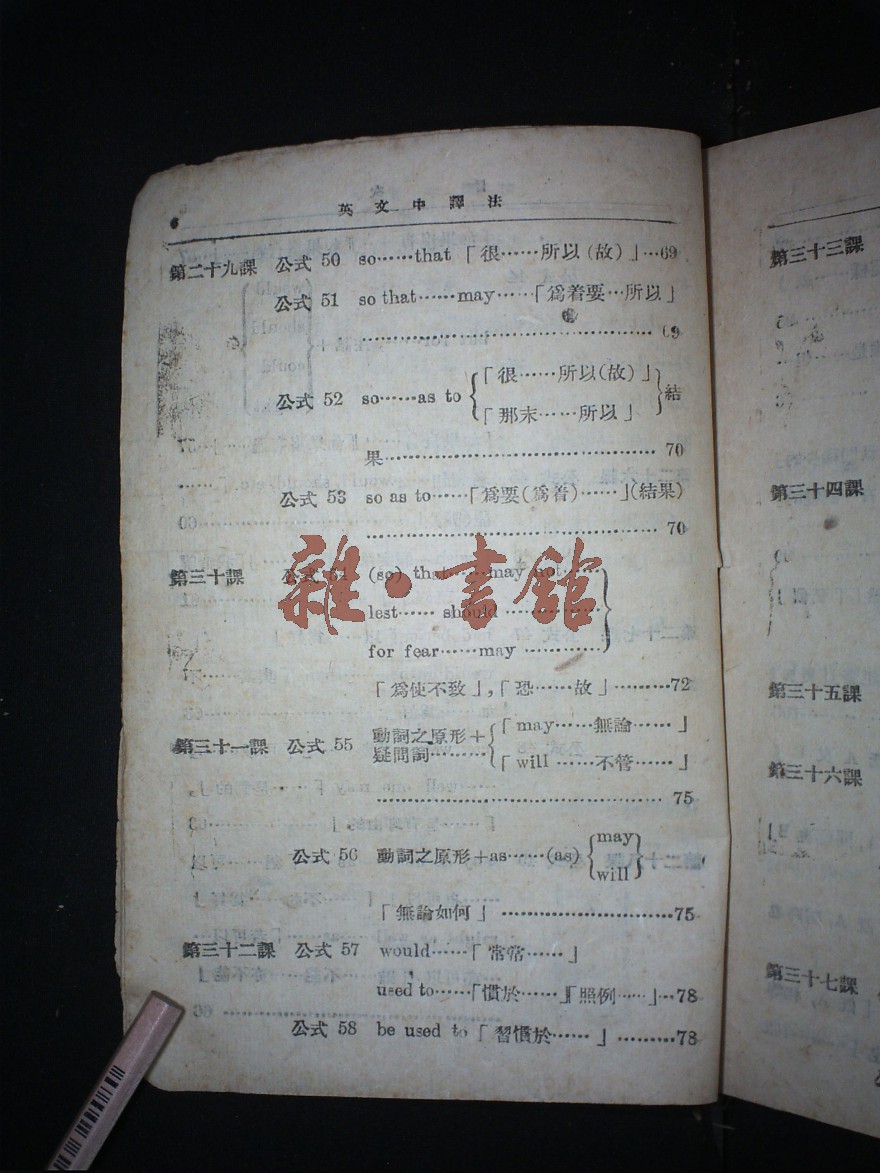 6
英文中譯法
第二十九課 公式 50 so……that「很……所以(故)」…69
公式 51 so that……may……「爲着要…所以」
……………………………………… 69
公式 52 so……as to {「很……所以(故)」
「那末……所以」} 結
果……………………………………… 70
公式 53 so as to……「爲要(爲着)……」(結果)
……………………………………… 70
第三十課 公式 54 (so) that……may not……
lest…… should ……………
for fear……may …………}
「爲使不致」,「恐……故」………72
第三十一課 公式 55 動詞之原形+ {「may……無論……」
疑問詞……… 「will……不管……」
……………………………………… 75
公式 56 動詞之原形+as……(as) {may
will}
「無論如何」………………………75
第三十二課 公式 57 would……「常常……」
used to……「慣於……」「照例……」…78
公式 58 be used to「習慣於……」………78
雜·書館
第三十三課
第三十四課
第三十五課
第三十六課
第三十七課